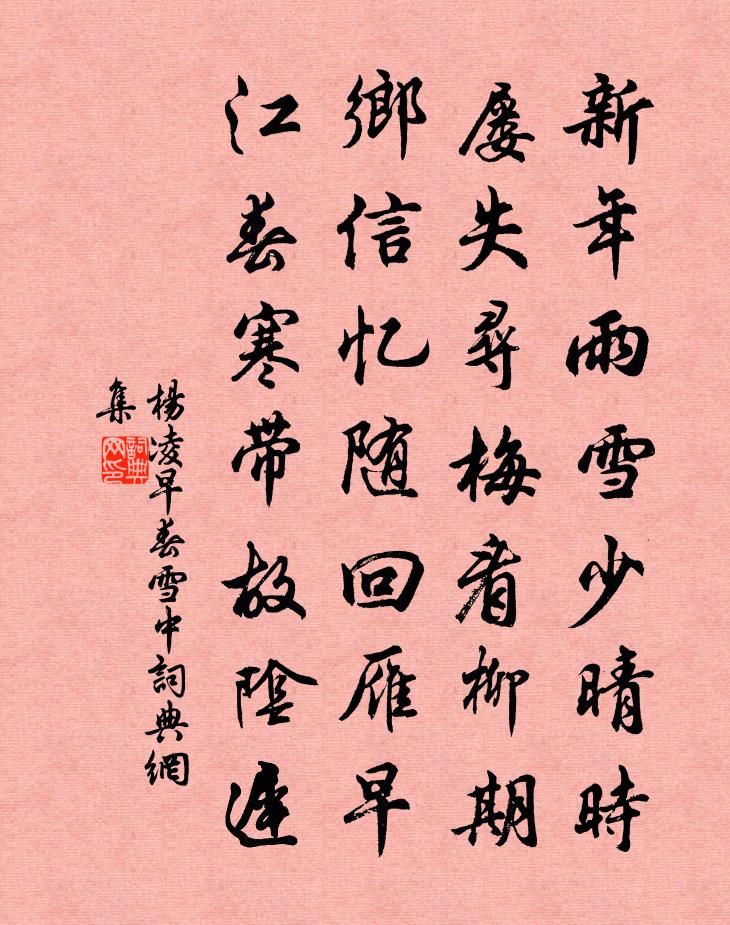 新年雨雪少晴時
屡失尋梅看柳期
鄉信忆随回雁早
江春寒带故陰遲
楊凌早春雪中詞典網
集
詞典
网印